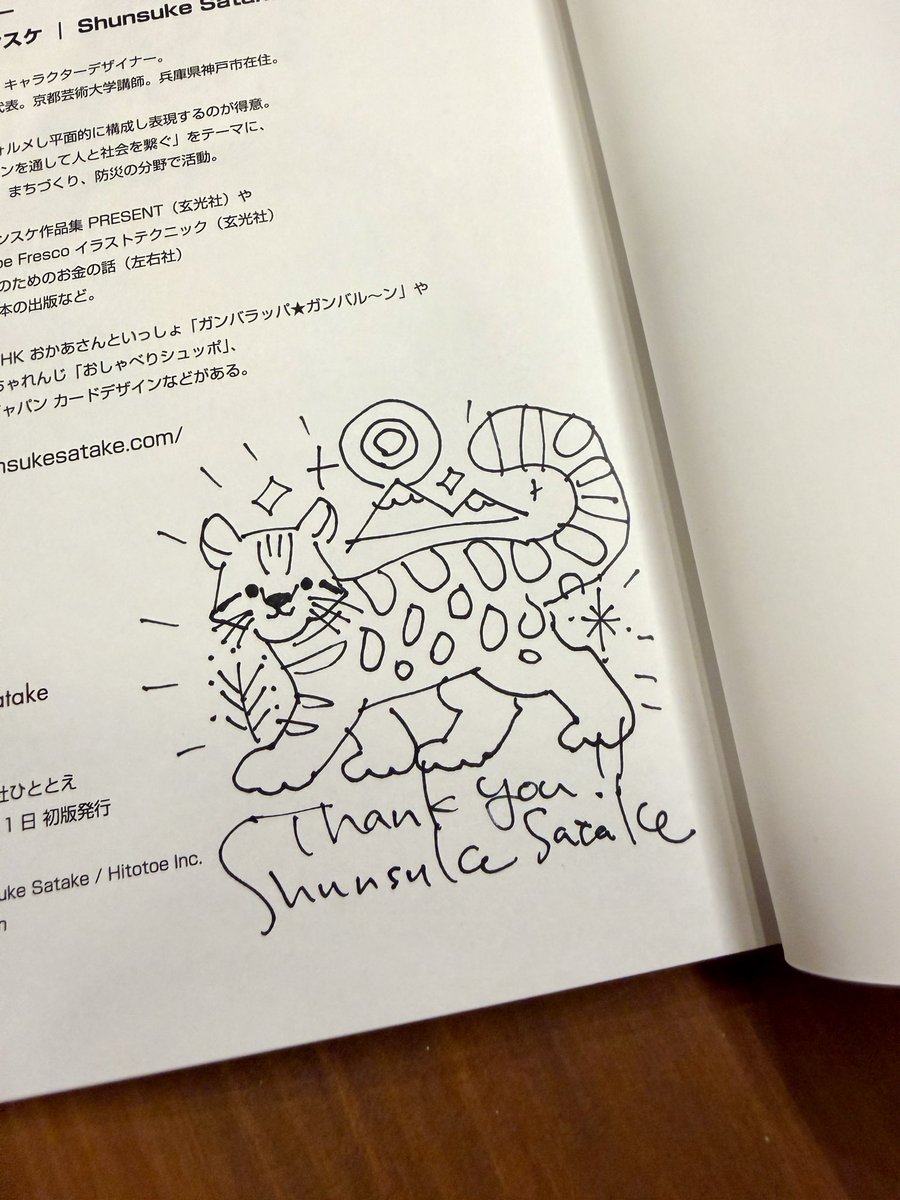 スケ | Shunsuke
キャラクターデザイナー。
代表。京都芸術大学講師。兵庫県神戸市在住。
ォルメし平面的に構成し表現するのが得意。
ンを通して人と社会を繋ぐ」をテーマに、
まちづくり、防災の分野で活動。
ンスケ作品集 PRESENT（玄光社）や
be Fresco イラストテクニック（玄光社）
のためのお金の話（左右社）
本の出版など。
HK おかあさんといっしょ「ガンバラッパ★ガンバル〜ン」や
ちゃれんじ「おしゃべりシュッポ」、
ジャパン カードデザインなどがある。
nsukesatake.com/
atake
社ひととえ
1日 初版発行
uke Satake / Hitotoe Inc.
n
Thank you!!
Shunsuke Satake